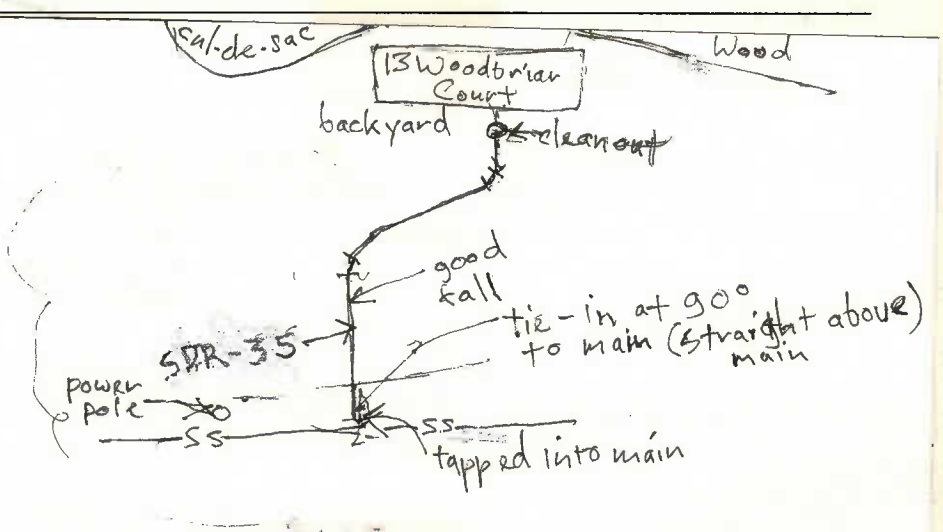 cul-de-sac
Wood
13 Woodbriar
Court
backyard
cleanout
good
fall
tie-in at 90°
to main (straight above)
main
SDR-35
power
pole
SS
SS
tapped into main